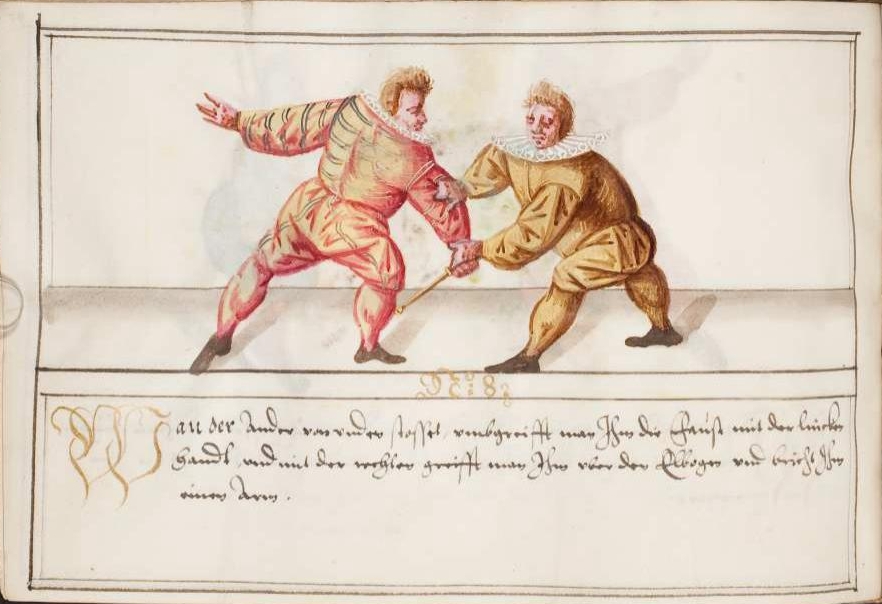 No: 83
Wan der Ander von vnden stosset, vmbgreifft man Ihm die Faust mit der lincken
Handt, vnd mit der rechten greifft man Ihm vber den Elbogen vnd bricht Ihm
einen Arm.